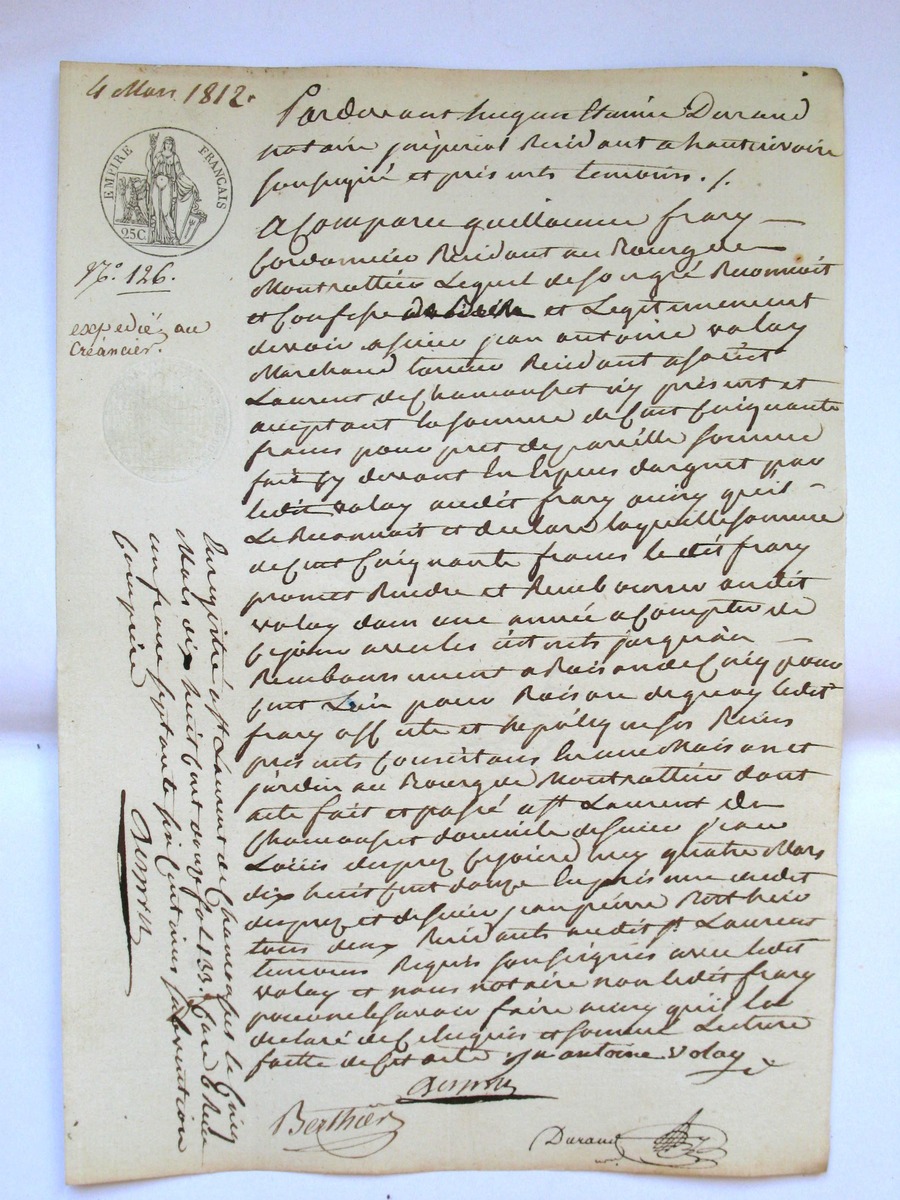 4 Mars 1812.
EMPIRE FRANÇAIS
25C.
N.º 126.
expedié au
Créancier.
Pardevant hugues Durand
notaire impérial Résidant a hauterivoire
soussigné et présents temoins ./.
A Comparu guillaume frary
Cordonnier Résidant au Bourg de
Montrottier Lequel de son gré Reconnait
et Confesse et Legitimement
devoir a sieur jean antoine volay
Marchand tanneur Résidant a saint
Laurent de Chamousset icy présent et
aceptant la somme de Cent Cinquante
francs pour pret de pareille somme
fait cy devant En Espèces d'argent par
ledit volay audit frary ainsy qu'il
Le Reconnait et declare laquelle somme
de Cent Cinquante francs ledit frary
promet Rendre et Rembourser audit
volay dans une année a Compter de
Ce jour avec les intérêts jusqu'au
Remboursement a Raison de Cinq pour
Cent Lan pour Raison de quoy ledit
frary affecte et hipotèque ses Biens
présents Consistans En une Maison et
jardin au Bourg de Montrottier dont
acte fait et passé a St Laurent de
Chamousset domicile de sieur jean
Loüis duprez Ce jourd'huy quatre Mars
dix huit Cent douze En présence dudit
duprez et de sieur jean pierre Berthier
tous deux Résidants audit St Laurent
temoins Requis soussignés avec ledit
volay et nous notaire non ledit frary
pour ne le savoir faire ainsy qu'il la
declaré de Ce Enquis et sommé Lecture
faitte de Cet acte jn antoine volay
Berthier
Durand
Enregistré a St Laurent de Chamousset le Cinq
Mars dix huit Cent douze fol. 133. Case 6 Reçu
un franc septante six Centimes subvention
Comprise